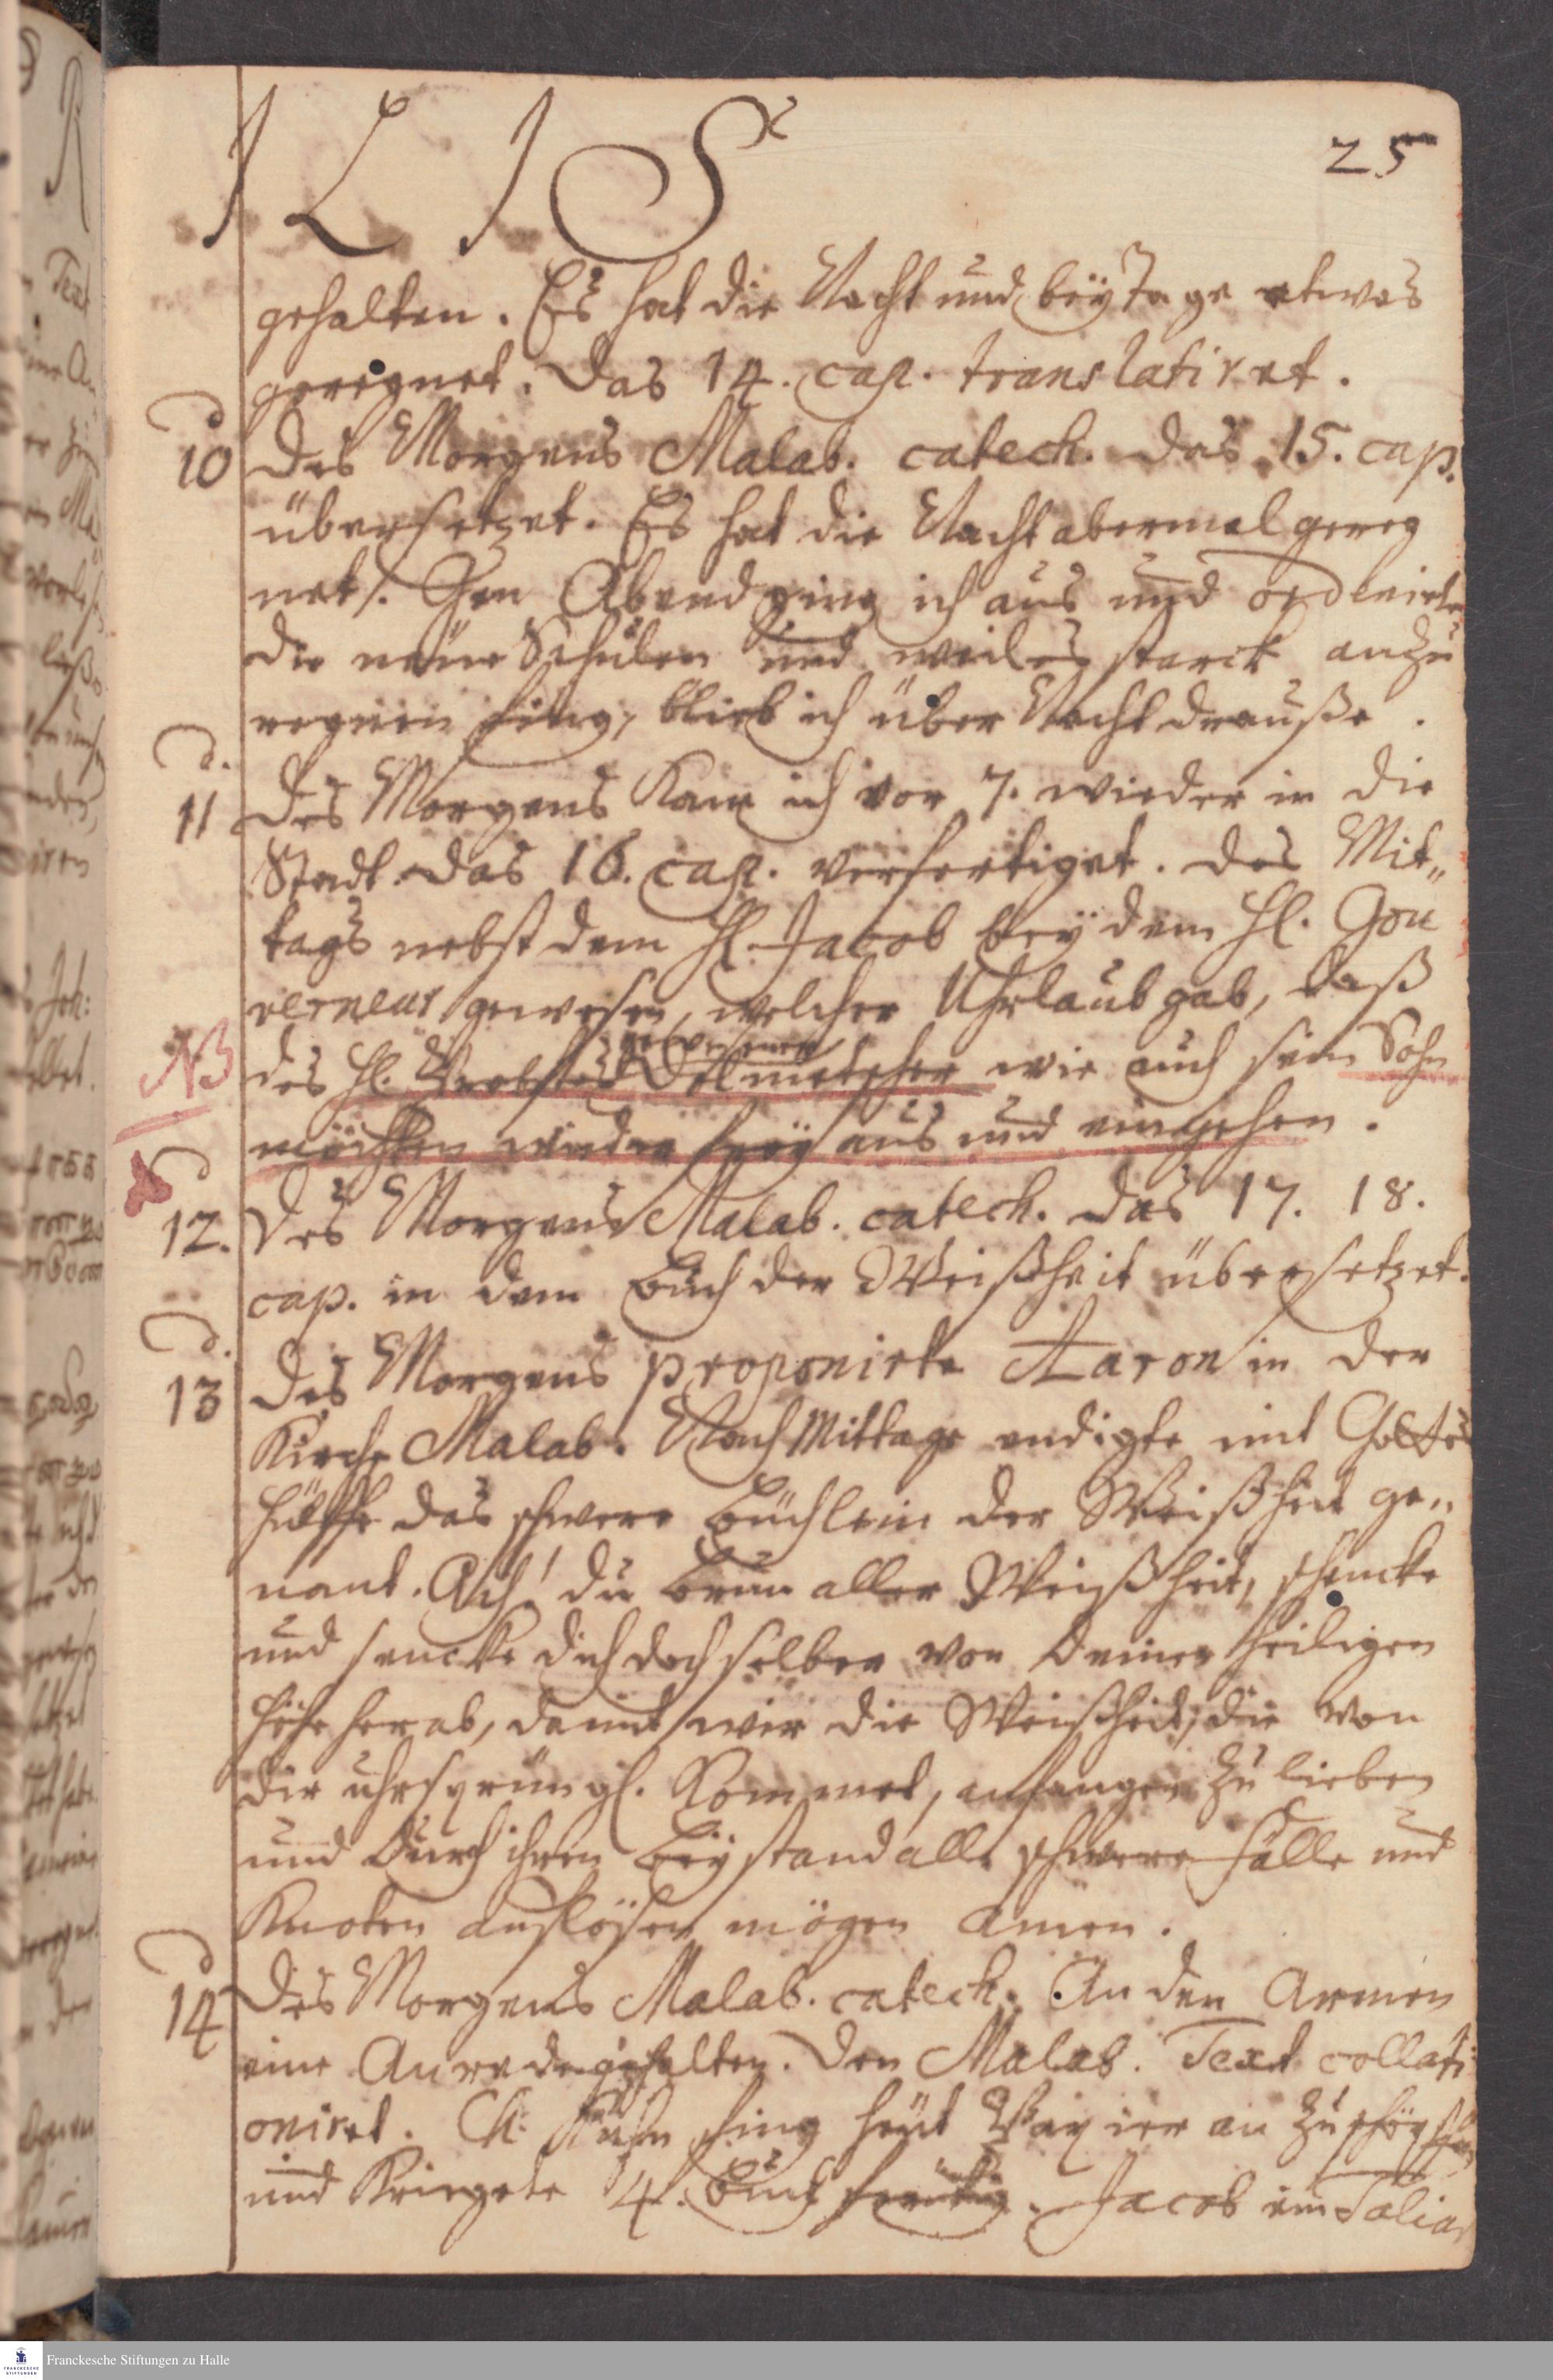 I L I S
25
gehalten. Es hat die Nacht und bey Tage etwas
geregnet. Das 14. cap. translatiret.
d
10 Des Morgens Malab. catech. das 15. cap.
übersetzet. Es hat die Nacht abermal gereg
net. Gen Abend ging ich aus und ordenirte
die neüe Schulen und weil es starck anzu
regnen fing, blieb ich über Nacht drauße.
d.
11 Des Morgens kam ich vor 7. wieder in die
Stadt. Das 16. cap. verfertiget. Des Mit„
tags nebst dem H. Jacob bey dem H. Gou
verneur gewesen, welcher Uhrlaub gab, daß
gewesener
NB des H. Probstes Dolmetscher wie auch sein Sohn
möchten wieder frey aus und eingehen.
d
12. Des Morgens Malab. catech. das 17. 18.
cap. in dem Buch der Weißheit übersetzet.
d.
13 Des Morgens proponirte Aaron in der
Kirche Malab. Nach Mittage endigte mit Gottes
Hülffe das schwere Büchlein der Weißheit ge„
nant. Ach! du Brun aller Weißheit, schencke
und sencke dich doch selber von deiner heiligen
Höhe herab, damit wir die Weisheit, die von
dir uhrsprüngl. kommet, anfangen zu lieben
und durch ihren Beystand alle schwere Fälle und
Knoten auflösen mögen amen.
d
14 Des Morgens Malab. catech. An den Armen
eine Anrede gehalten. Den Malab. Text collati
oniret. fing heüt Papier an zu schöpffen
und kriegete 4. Buch fertig. Jacob ein Taliar
Franckesche Stiftungen zu Halle